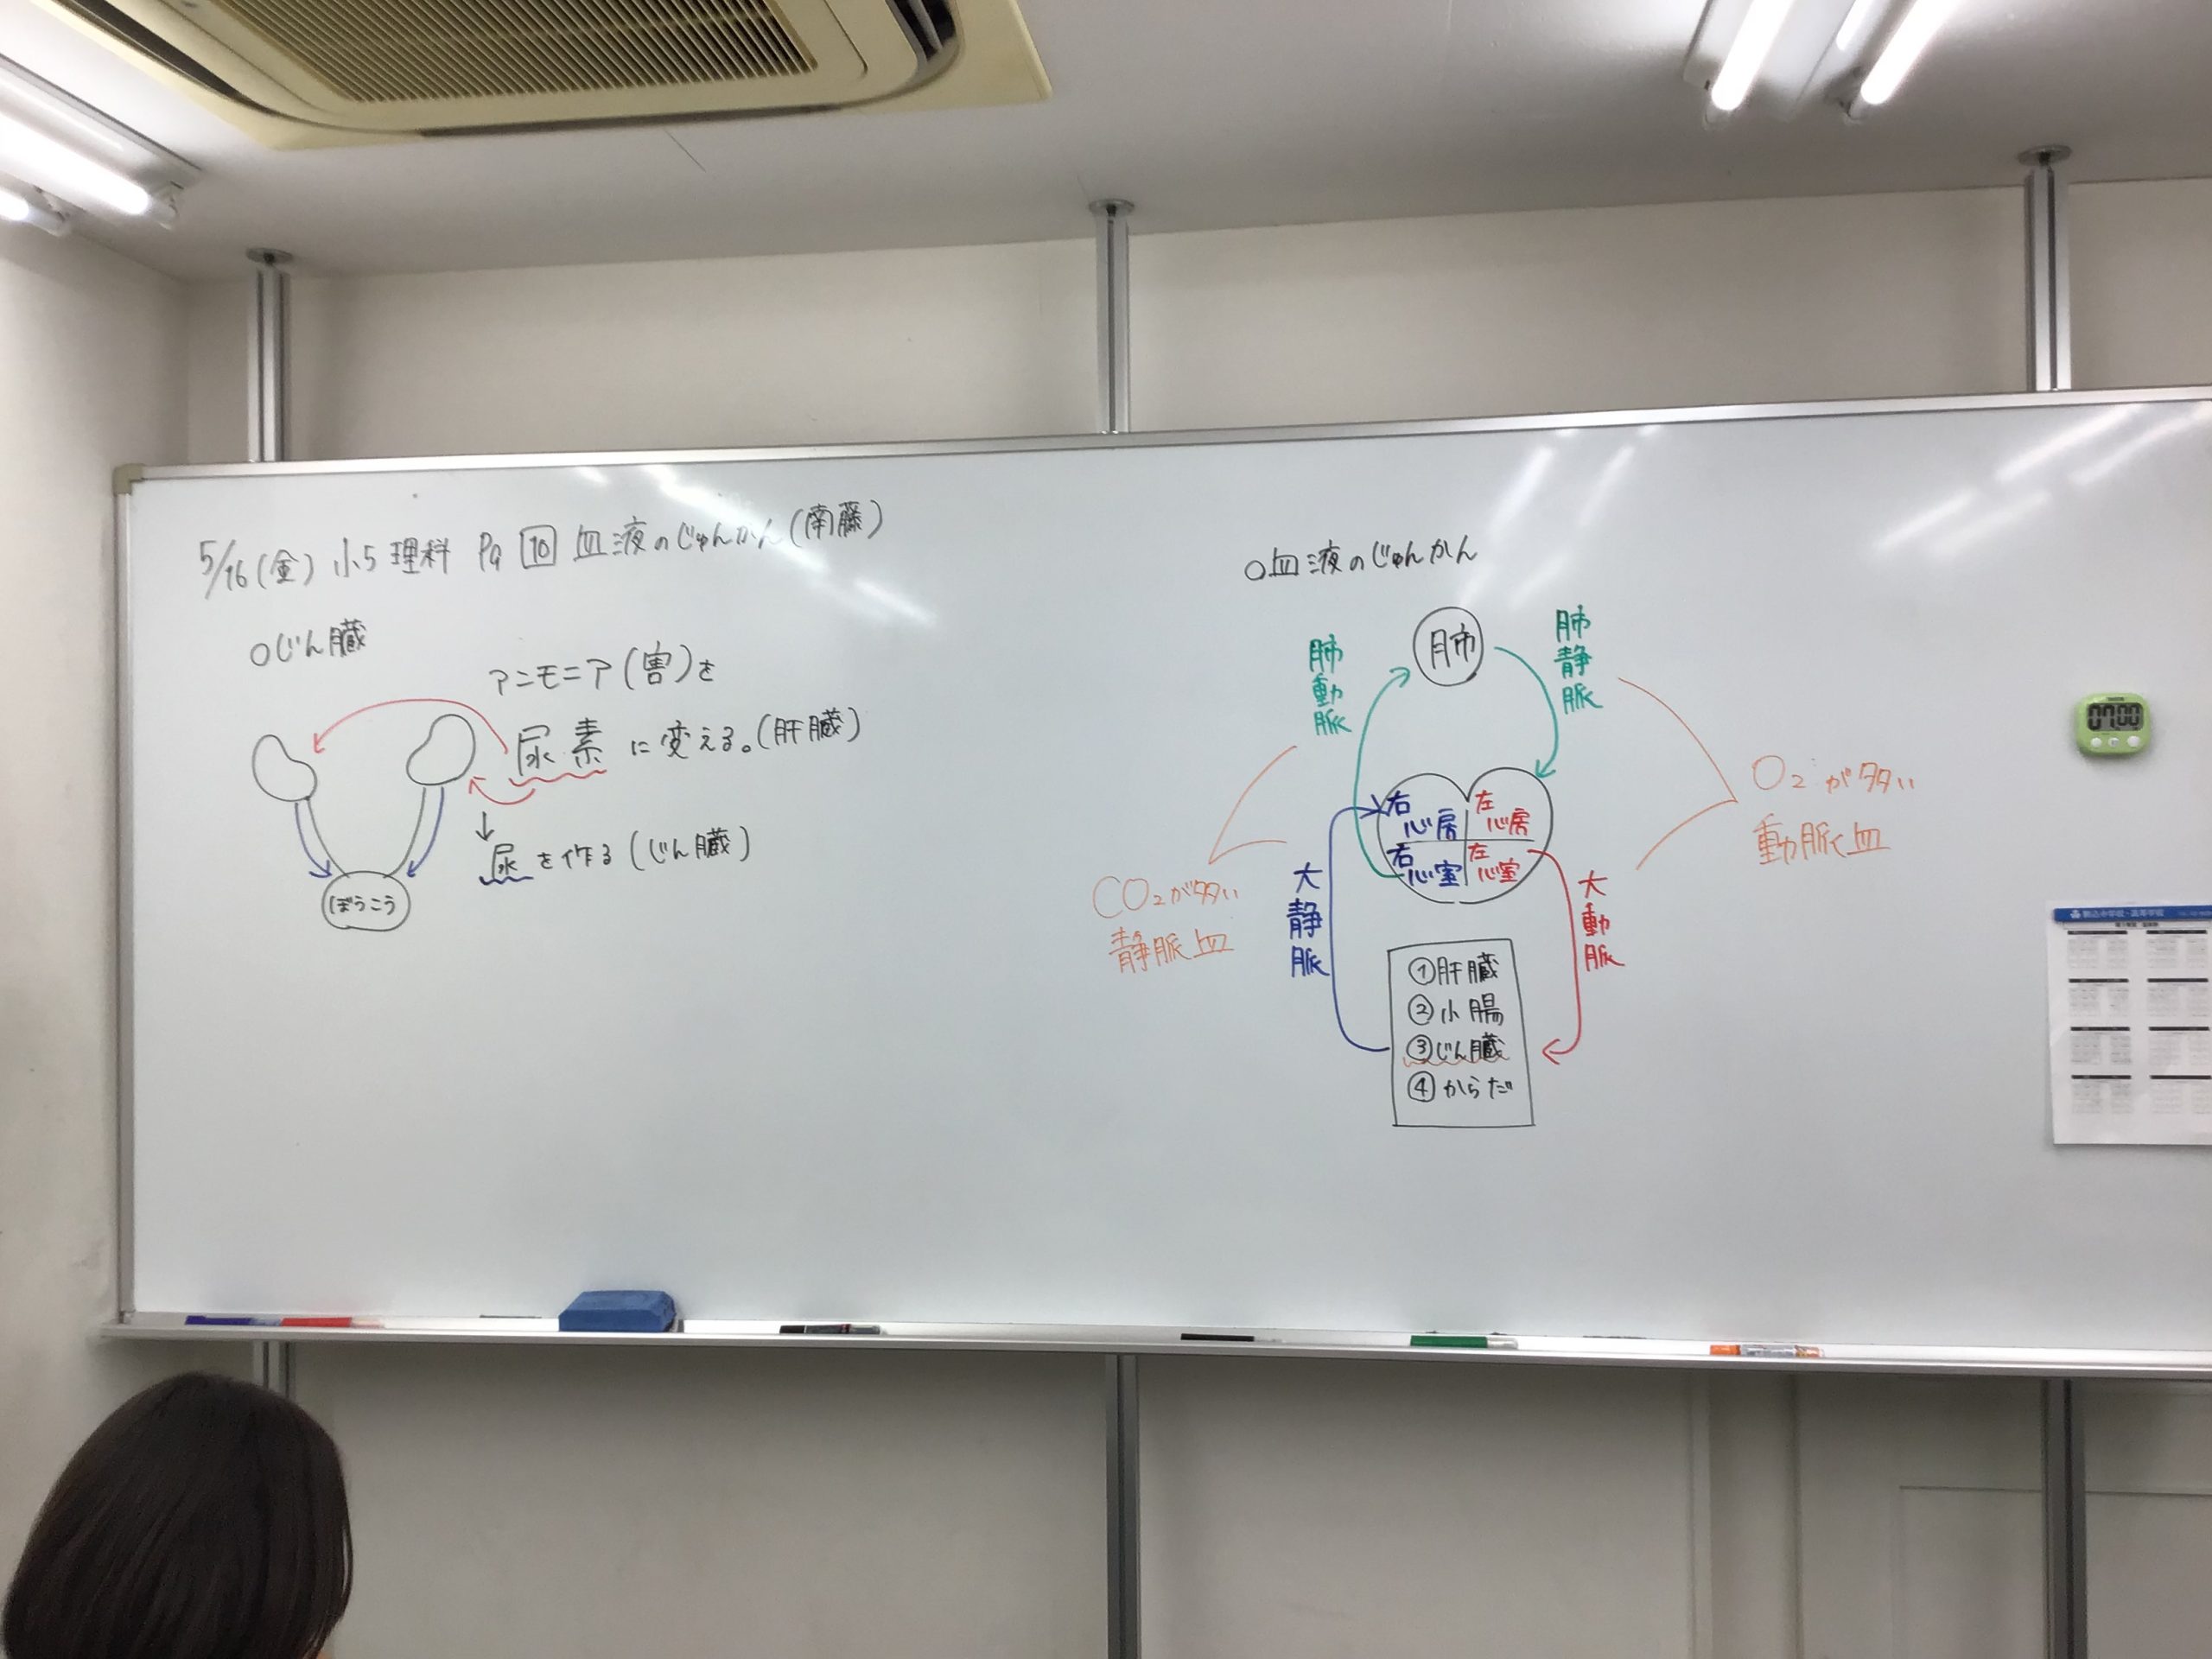 5/16(金) 小5 理科 P9 10 血液のじゅんかん(南藤)
○じん臓
アンモニア(害)を
尿素に変える。(肝臓)
↓
尿を作る(じん臓)
ぼうこう
○血液のじゅんかん
肺
肺動脈
肺静脈
右心房
左心房
右心室
左心室
大静脈
大動脈
CO₂が多い
静脈血
O₂が多い
動脈血
①肝臓
②小腸
③じん臓
④からだ
07:00